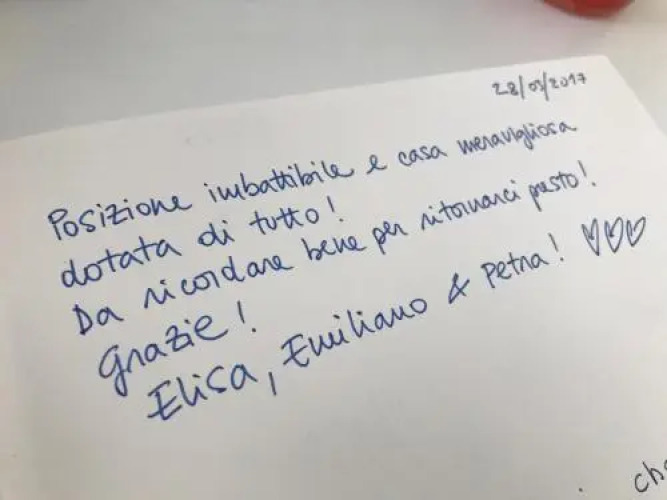 28/03/2017
Posizione imbattibile e casa meravigliosa
dotata di tutto!
Da ricordare bene per ritornarci presto!
Grazie!
Elisa, Emiliano & Petra! ♡♡♡